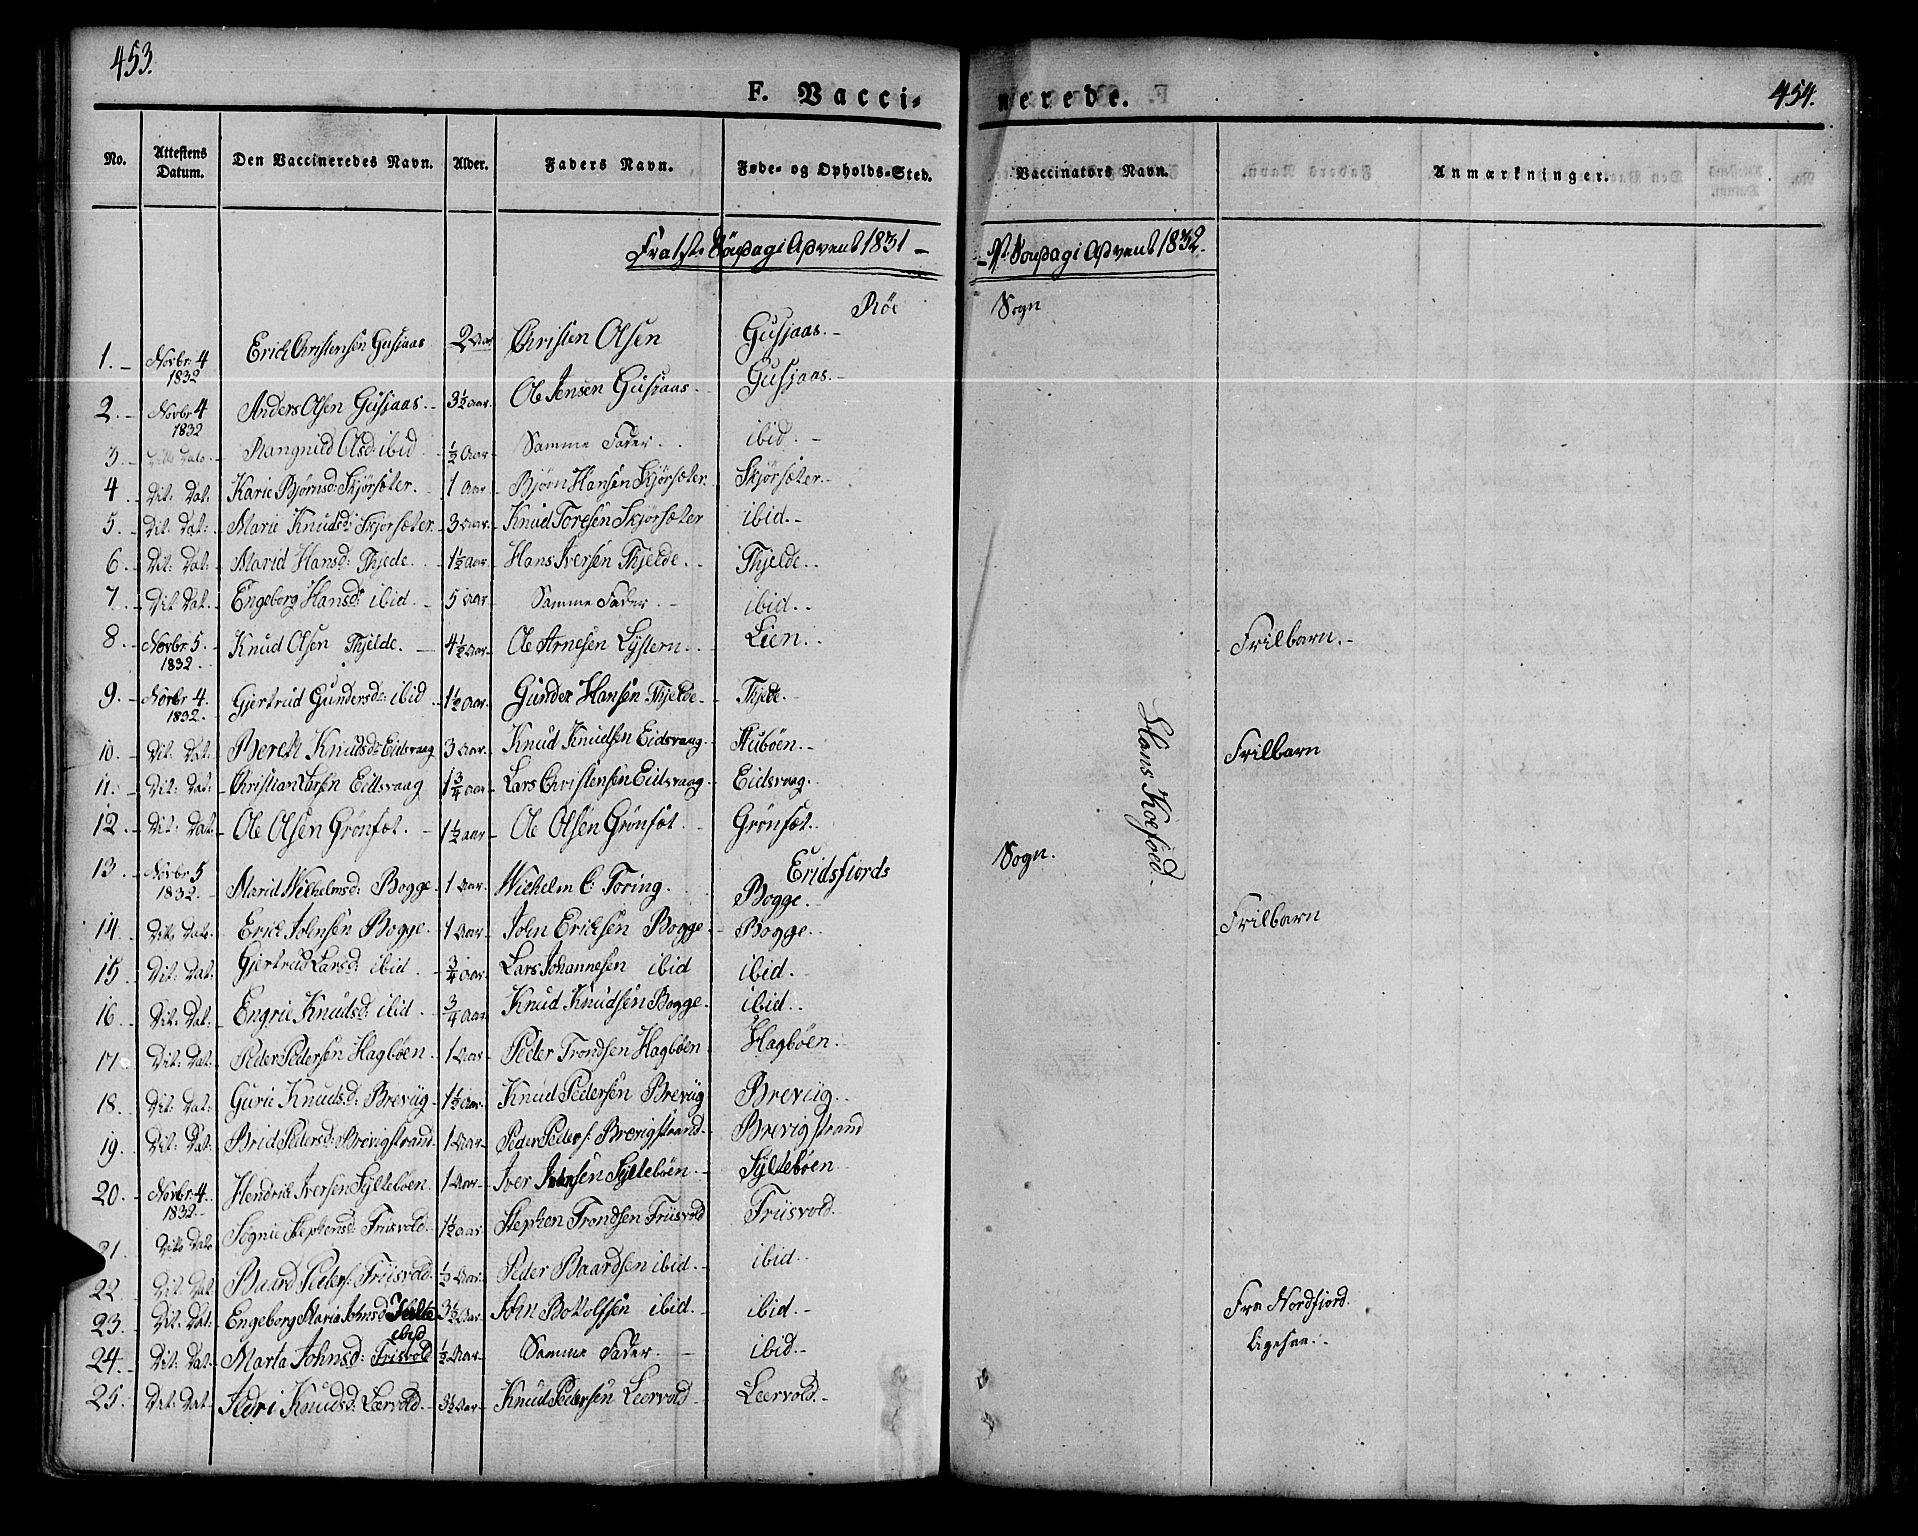 453.
F. Vacci-
nerede.
454.
No. Attestens Datum. Den Vaccineredes Navn. Alder. Faders Navn. Føde- og Opholds-Sted.
Vaccinators Navn. Anmærkninger.
Fra 1ste Söndag i Advent 1831 –
– 1ste Söndag i Advent 1832.
Røe
Sogn
1. Novbr: 4 1832 Erich Christensen Gusjaas 2 Aar Christen Olsen Gusjaas.
2. Novbr 4 1832 Anders Olsen Gusjaas. 3½ Aar. Ole Jensen Gusjaas. Gusjaas.
3. Dito Dato. Rangnild Olsd: ibid ½ Aar Samme Fader. ibid.
4. Dit: Dat: Karie Bjørnsd: Skjörsæter. 1 Aar Bjørn Hansen Skjörsæter. Skjörsæter.
5. Dit: Dat: Marie Knudsd: Skjörsæter. 3 Aar. Knud Toresen Skjörsæter ibid.
6. Dit: Dat: Marid Hansd: Thjede. 1½ Aar Hans Iversen Thjelde. Thjelde.
7. Dit: Dat. Engeborg Hansd: ibid 5 Aar. Samme Fader. ibid.
8. Novbr 5. 1832. Knud Olsen Thjelde. 4½ Aar Ole Arnesen Lystern. Lien.
Frilbarn.
9. Novbr 4. 1832. Gjertrud Gundersd: ibid 1½ Aar. Gunder Hansen Thjelde Thjede.
10. Dit: Dat: Bereth Knudsd: Eidsvaag 3 Aar. Knud Knudsen Eidsvaag. Hubøen.
Frilbarn
11. Dit: Dat: Christian Larsen Eidsvaag 1¾ Aar Lars Christensen Eidsvaag Eidsvaag.
12. Dit: Dat. Ole Olsen Grönsæt. 1½ aar Ole Olsen Grönsæt. Grönsæt.
Hans Koefoed.
Eridsfiords
Sogn.
13. Novbr 5 1832. Marid Wilhelmsd: Bogge 1 Aar Wilhelm C. Toring. Bogge.
14. Dito Dato. Erich Johnsen Bogge. 1 Aar John Ericksen Bogge. Bogge.
Frilbarn
15. Dit: Dat: Gjertrud Larsd: ibid ¾ Aar. Lars Johannesen ibid ibid.
16. Dit: Dat: Engrie Knudsd: ibid. ¾ Aar. Knud Knudsen Bogge. ibid.
17. Dit: Dat: Peder Pedersen Hagbøen. 1 Aar Peder Trondsen Hagbøen Hagbøen.
18. Dit: Dat: Gurie Knudsd: Breviig. 1½ Aar. Knud Pedersen Breviig Breviig.
19. Dit: Dat: Brid Pedersd: Brevigstrand 1 Aar Peder Peders: Brevigstrand. Brevigstrand
20. Novbr 4. 1832. Hendrich Iversen Sylteböen. 1 Aar Iver Iversen Sylteböen. Sylteböen
21. Dito Dato Søgnie Stephensd: Friisvold. 1½ Aar Stephen Trondsen Friisvold Friisvold.
22. Dit: Dat Baard Peders: Friisvold. ½ Aar Peder Baardsen ibid. ibid.
23. Dit: Dat: Engeborg Maria Johnsd: Sylte ibid 3½ Aar. John Botolfsen ibid. ibid.
Fra Nordfiord.
24. Dit: Dat. Marta Johnsd: Frisvold ½ Aar Samme Fader. ibid.
Ligesaa.
25. Dat: Dat Ildri Knudsd: Leervold. 3½ Aar Knud Pedersen Leervold Leervold.